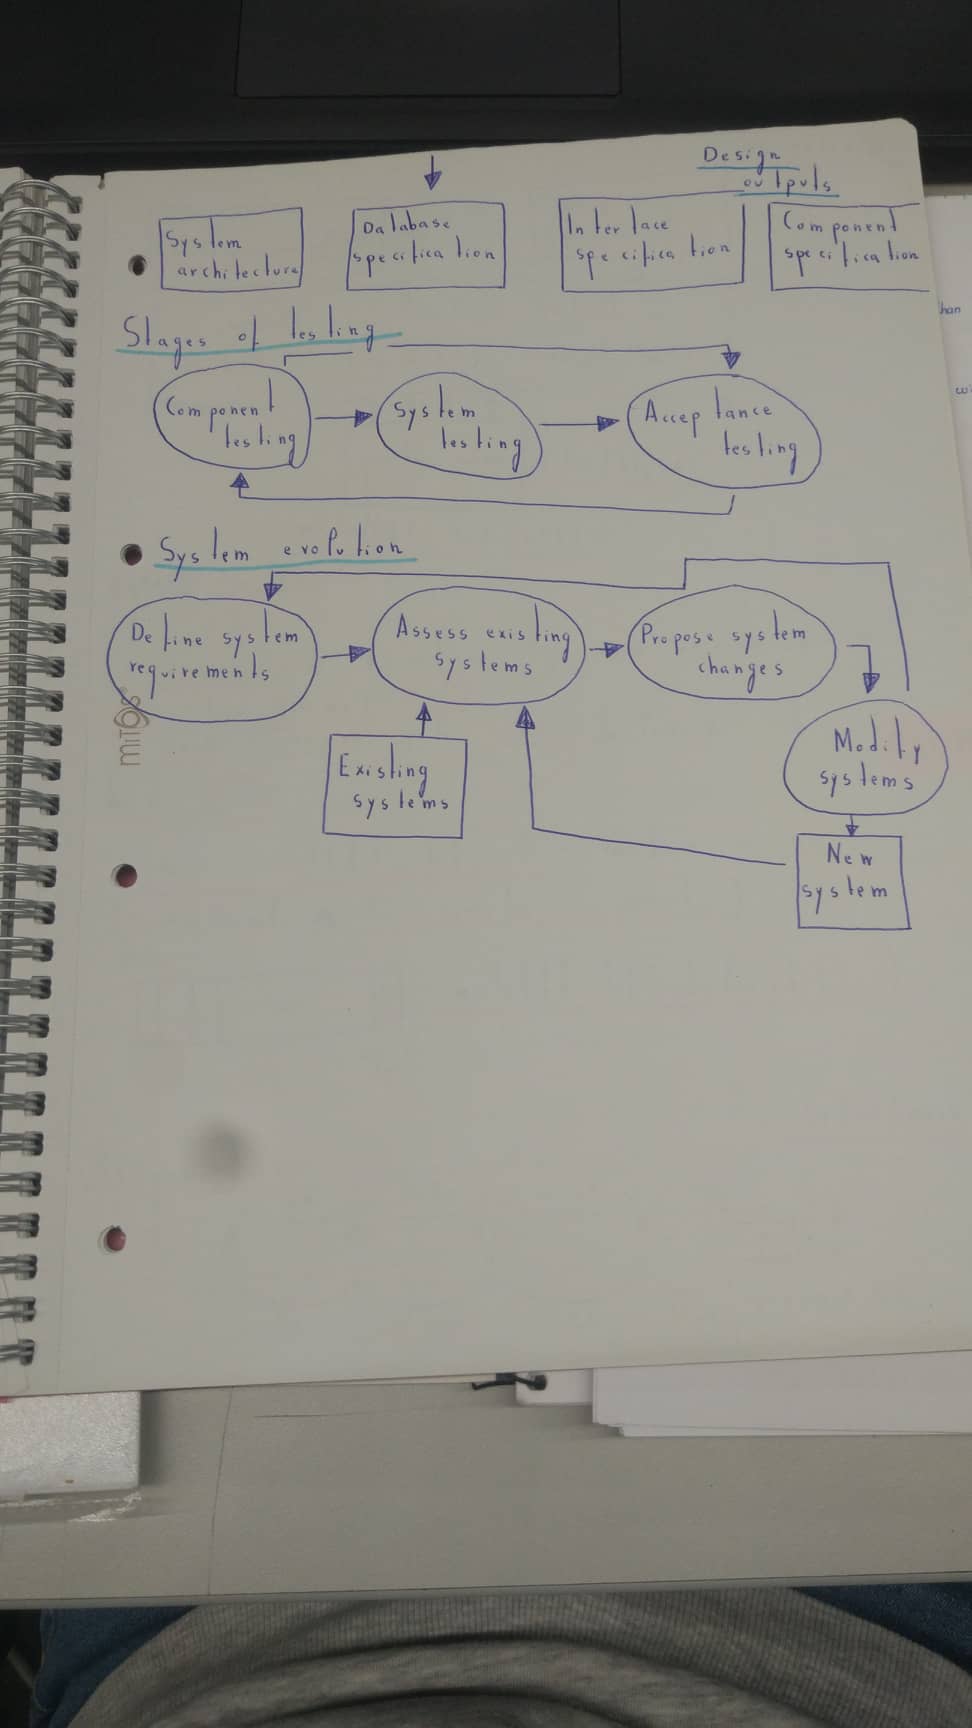 Design
outputs
System
architecture
Database
specification
Interface
specification
Component
specification
Stages of testing
Component
testing
System
testing
Acceptance
testing
System evolution
Define system
requirements
Assess existing
systems
Propose system
changes
Existing
systems
Modify
systems
New
system
mitos
han
wi